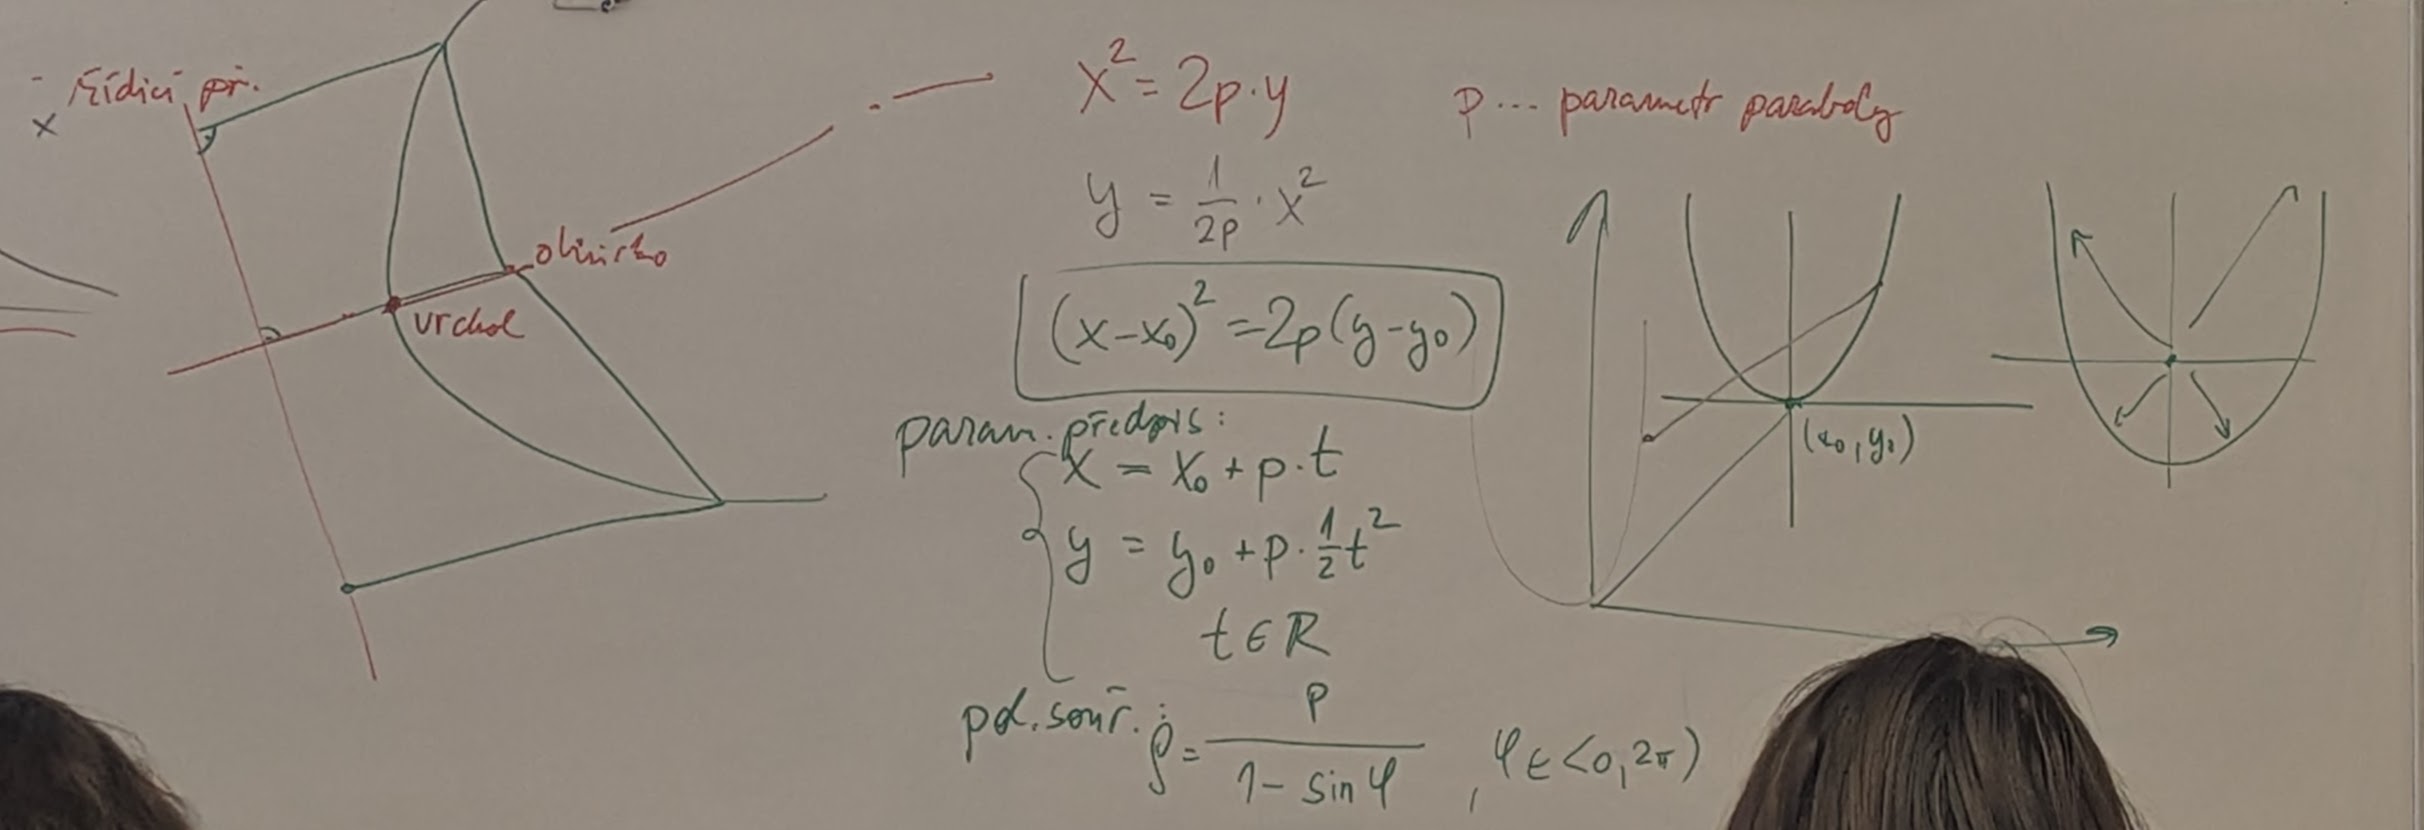 řídicí př.
x
ohnisko
vrchol
x² = 2p·y
p ... parametr paraboly
y = 1/2p · x²
(x-x₀)² = 2p(y-y₀)
param. předpis:
x = x₀ + p·t
y = y₀ + p·½t²
t ∈ R
(x₀, y₀)
pol. souř.: ρ = p / (1 - sin φ) , φ ∈ <0, 2π)